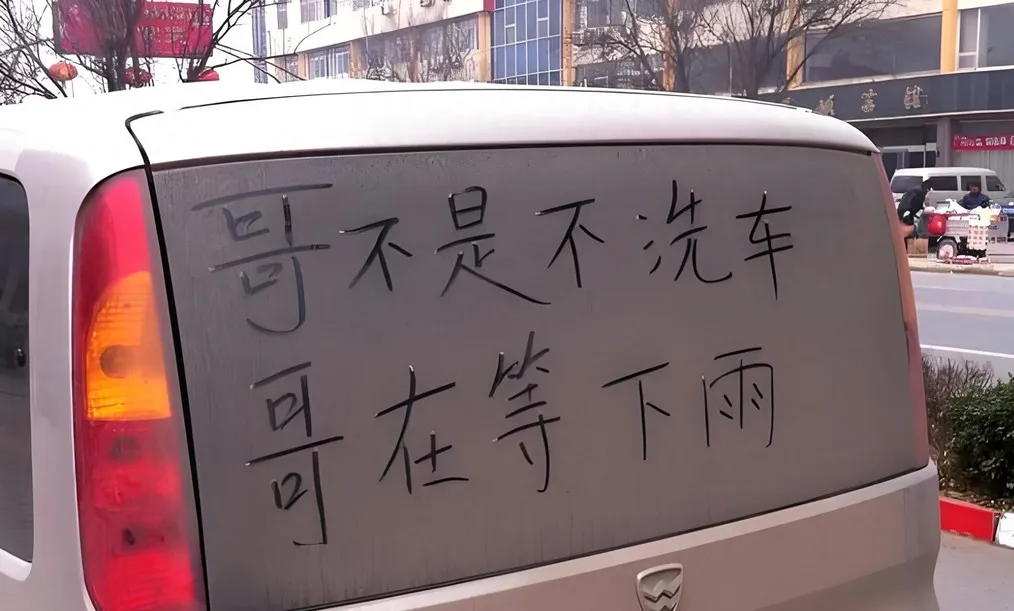 哥不是不洗车
哥在等下雨